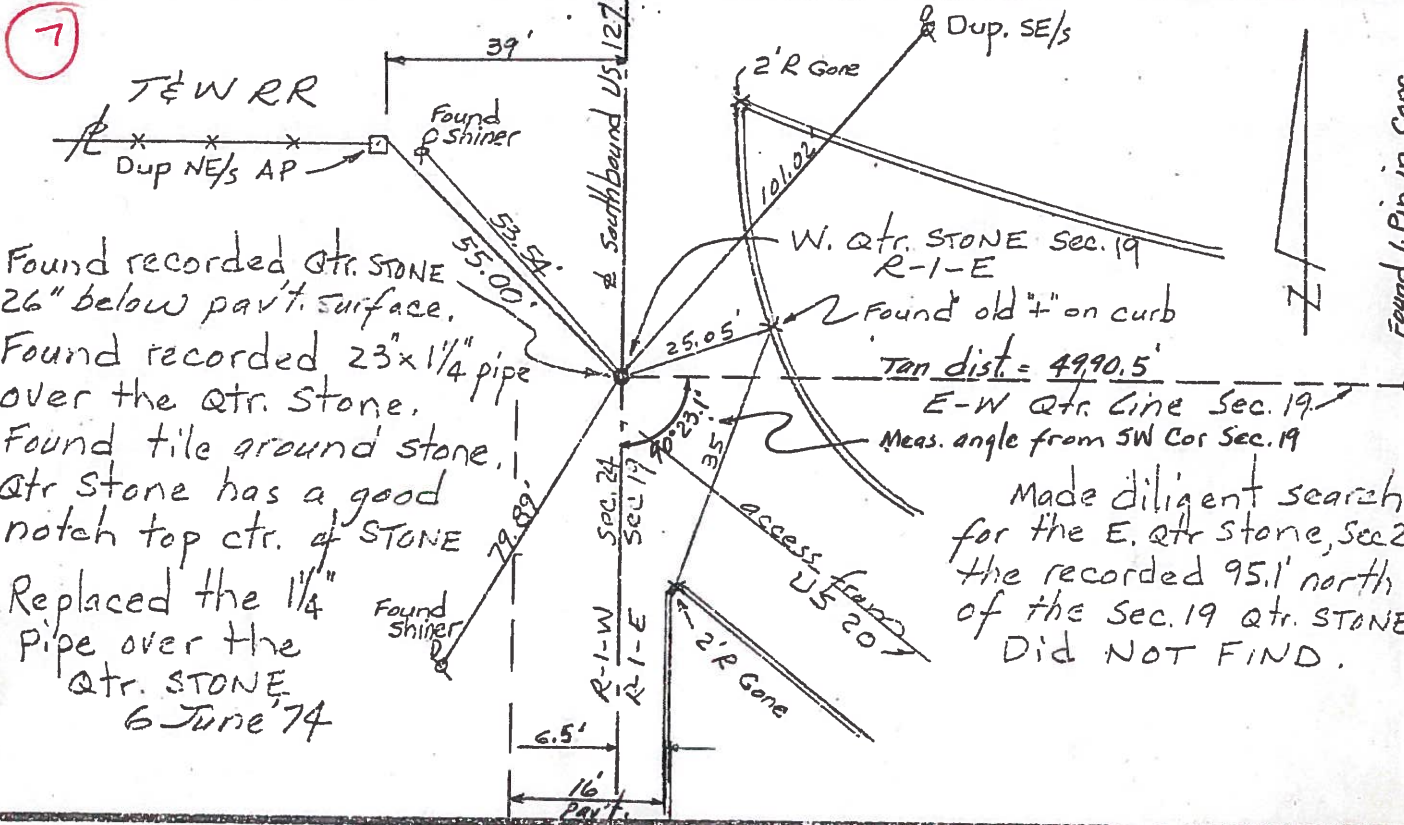 7
39'
T & W RR
Found
Shiner
Dup NE/s AP
Southbound US 127
Dup. SE/s
2'R Gone
53.54'
55.00'
101.02'
W. Qtr. STONE Sec. 19
R-1-E
Found old "+" on curb
25.05'
Tan dist. = 4990.5'
E-W Qtr. Line Sec. 19
90°23.1'
Meas. angle from SW Cor Sec. 19
35'
Found recorded Qtr. STONE
26" below pav't. surface.
Found recorded 23"x 1¼" pipe
over the Qtr. Stone.
Found tile around stone.
Qtr Stone has a good
notch top ctr. of STONE
Replaced the 1¼"
pipe over the
Qtr. STONE
6 June '74
79.89'
Found
Shiner
Sec. 24
Sec 19
R-1-W
R-1-E
access from
US 20
2'R Gone
Made diligent search
for the E. Qtr Stone, Sec 2
the recorded 95.1' north
of the Sec. 19 Qtr. STONE
Did NOT FIND.
6.5'
16'
Pav't.
N